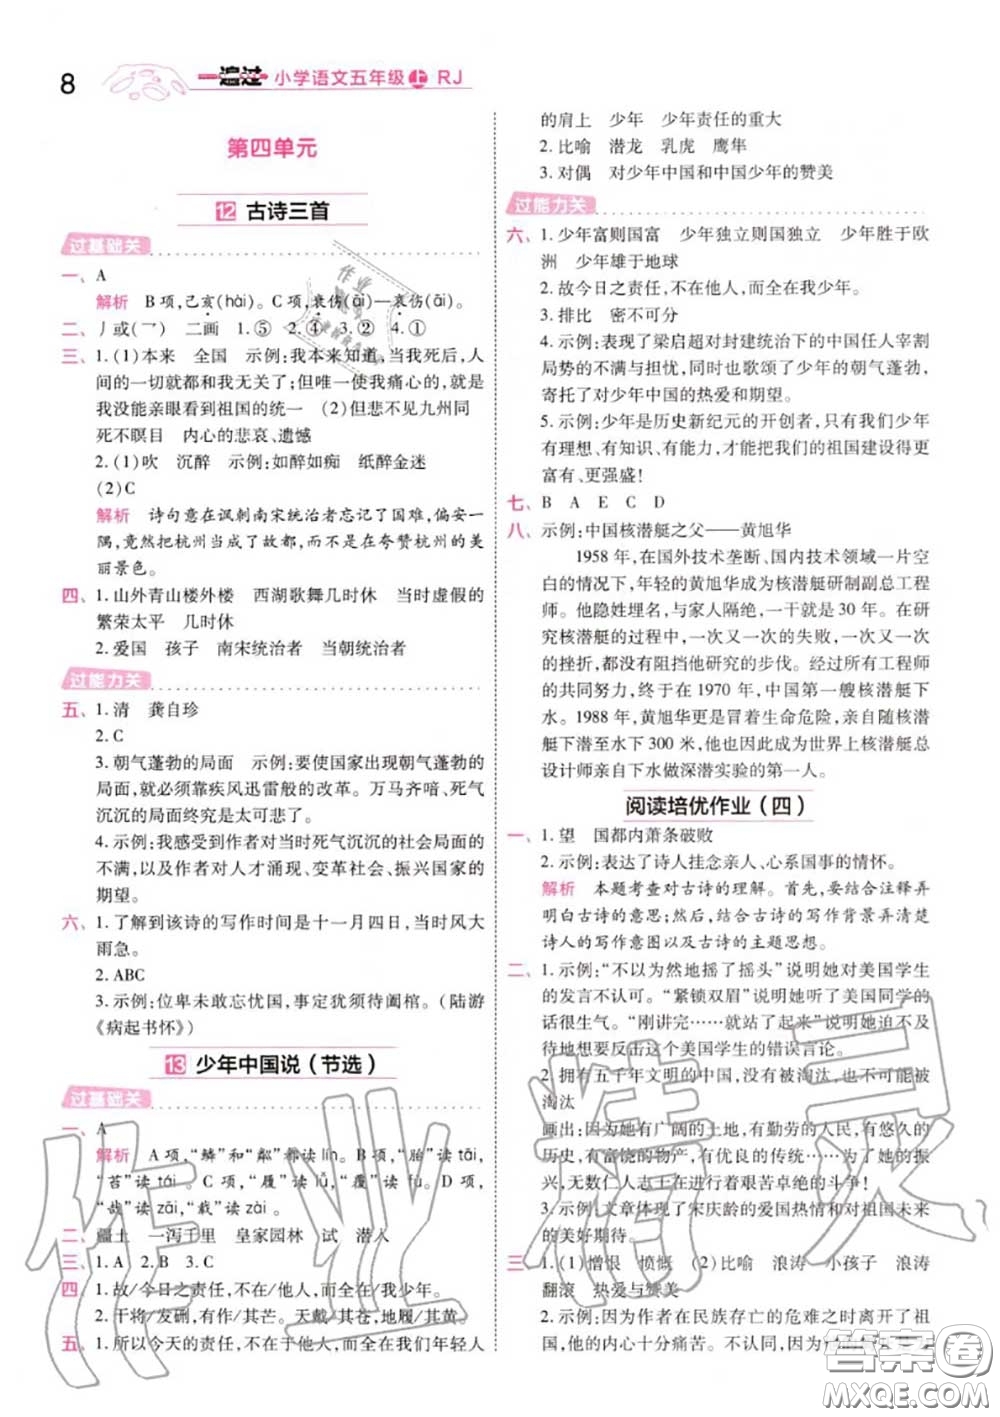 8
一遍过 小学语文五年级上 RJ
第四单元
12 古诗三首
过基础关
一、A
解析 B项,己亥(hài)。C项,衰伤(āi)—哀伤(āi)。
二、丿或(乛) 二画 1.⑤ 2.④ 3.② 4.①
三、1.(1)本来 全国 示例:我本来知道,当我死后,人
间的一切就都和我无关了;但唯一使我痛心的,就是
我没能亲眼看到祖国的统一 (2)但悲不见九州同
死不瞑目 内心的悲哀、遗憾
2.(1)吹 沉醉 示例:如醉如痴 纸醉金迷
(2)C
解析 诗句意在讽刺南宋统治者忘记了国难,偏安一
隅,竟然把杭州当成了故都,而不是在夸赞杭州的美
丽景色。
四、1.山外青山楼外楼 西湖歌舞几时休 当时虚假的
繁荣太平 几时休
2.爱国 孩子 南宋统治者 当朝统治者
过能力关
五、1.清 龚自珍
2.C
3.朝气蓬勃的局面 示例:要使国家出现朝气蓬勃的
局面,就必须依靠疾风迅雷般的改革。万马齐喑、死气
沉沉的局面终究是太可悲了。
4.示例:我感受到作者对当时死气沉沉的社会局面的
不满,以及作者对人才涌现、变革社会、振兴国家的
期望。
六、1.了解到该诗的写作时间是十一月四日,当时风大
雨急。
2.ABC
3.示例:位卑未敢忘忧国,事定犹须待阖棺。(陆游
《病起书怀》)
13 少年中国说(节选)
过基础关
一、A
解析 A项,“鳞”和“粼”都读lín。B项,“胎”读tāi,
“苔”读tái。C项,“履”读lǚ,“覆”读fù。D项,
“哉”读zāi,“栽”读zāi。
二、疆土 一泻千里 皇家园林 试 潜入
三、1.A 2.B 3.C
四、1.故/今日之责任,不在/他人,而全在/我少年。
2.干将/发硎,有作/其芒。天戴/其苍,地履/其黄。
五、1.所以今天的责任,不在别人身上,全在我们年轻人
的肩上 少年 少年责任的重大
2.比喻 潜龙 乳虎 鹰隼
3.对偶 对少年中国和中国少年的赞美
过能力关
六、1.少年富则国富 少年独立则国独立 少年胜于欧
洲 少年雄于地球
2.故今日之责任,不在他人,而全在我少年。
3.排比 密不可分
4.示例:表现了梁启超对封建统治下的中国任人宰割
局势的不满与担忧,同时也歌颂了少年的朝气蓬勃,
寄托了对少年中国的热爱和期望。
5.示例:少年是历史新纪元的开创者,只有我们少年
有理想、有知识、有能力,才能把我们的祖国建设得更
富有、更强盛!
七、B A E C D
八、示例:中国核潜艇之父——黄旭华
1958年,在国外技术垄断、国内技术领域一片空
白的情况下,年轻的黄旭华成为核潜艇研制副总工程
师。他隐姓埋名,与家人隔绝,一干就是30年。在研
究核潜艇的过程中,一次又一次的失败,一次又一次
的挫折,都没有阻挡他研究的步伐。经过所有工程师
的共同努力,终于在1970年,中国第一艘核潜艇下
水。1988年,黄旭华更是冒着生命危险,亲自随核潜
艇下潜至水下300米,他也因此成为世界上核潜艇总
设计师亲自下水做深潜实验的第一人。
阅读培优作业(四)
一、1.望 国都内萧条破败
2.示例:表达了诗人挂念亲人、心系国事的情怀。
解析 本题考查对古诗的理解。首先,要结合注释弄
明白古诗的意思;然后,结合古诗的写作背景弄清楚
诗人的写作意图以及古诗的主题思想。
二、1.示例:“不以为然地摇了摇头”说明她对美国学生
的发言不认可。“紧锁双眉”说明她听了美国同学的
话很生气。“刚讲完……就站了起来”说明她迫不及
待地想要反驳这个美国学生的错误言论。
2.拥有五千年文明的中国,没有被淘汰,也不可能被
淘汰
画出:因为她有广阔的土地,有勤劳的人民,有悠久的
历史,有富饶的物产,有优良的传统……为了她的振
兴,无数仁人志士在进行着艰苦卓绝的斗争!
3.示例:文章体现了宋庆龄的爱国热情和对祖国未来
的美好期待。
三、1.(1)憎恨 愤慨 (2)比喻 浪涛 小孩子 浪涛
翻滚 热爱与赞美
2.示例:因为作者在民族存亡的危难之时离开了祖
国,他的内心十分痛苦。不认同,因为
作业精灵
答案圈
MXQE.COM